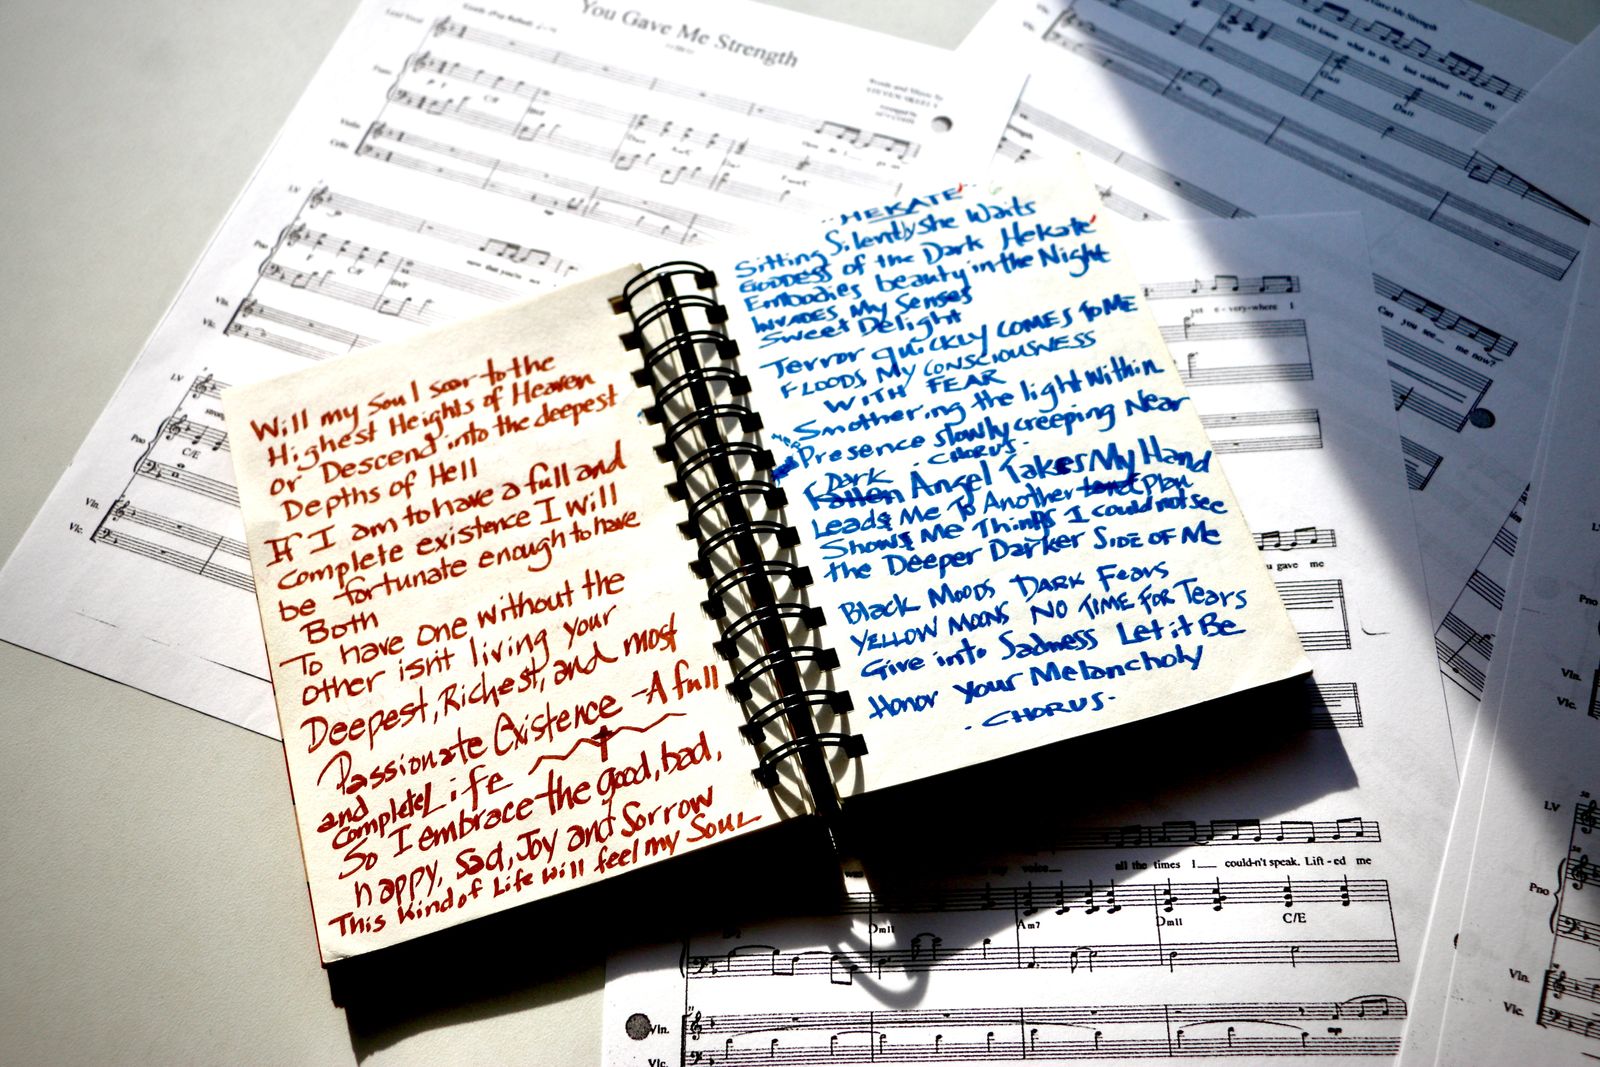 You Gave Me Strength
Lead Vocal
Piano
Violin
Cello
LV
Pno
Vln.
Vlc.
LV
Pno
C/E
Vln.
Vlc.
Will my Soul soar to the
Highest Heights of Heaven
or Descend into the deepest
Depths of Hell
If I am to have a full and
complete existence I Will
be fortunate enough to have
Both
To have one without the
other isn't living your
Deepest, Richest, and most
Passionate Existence - A full
and complete Life
So I embrace the good, bad,
happy, sad, Joy and Sorrow
This Kind of Life will feel my Soul
"HEKATE"
Silently She Waits
Sitting
GODDESS of the Dark Hekate
Embodies beauty in the Night
INVADES My Senses
Sweet Delight
Terror quickly COMES TO ME
FLOODS My CONSCIOUSNESS
WITH FEAR
Smothering the light Within
Her Presence slowly creeping Near
- CHORUS -
Dark
Fallen Angel Takes My Hand
Leads Me To Another plan
Shows Me Things I could not see
the Deeper Darker SIDE OF Me
Black Moods Dark Fears
YELLOW MOONS NO TIME FOR Tears
Give into Sadness Let it Be
Honor Your Melancholy
- CHORUS -
You Gave Me Strength
Don't know what to do, lost without you my
Gm11
Dm11
yet e - very-where I
Can you see... me now?
u gave me
was
my voice
all the times I could-n't speak. Lift - ed me
Dm11
Am7
Dm11
C/E
Vln.
Vlc.
Vln.
Vlc.
LV
Pno
Vln.
Vlc.